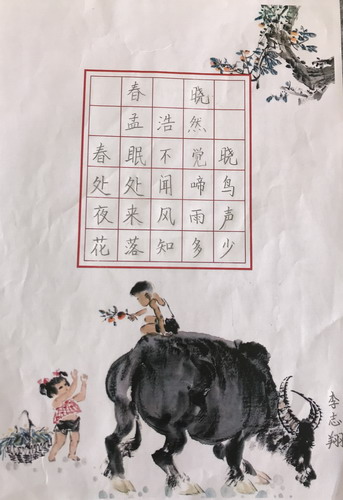 春晓
孟浩然
春眠不觉晓
处处闻啼鸟
夜来风雨声
花落知多少
李志翔